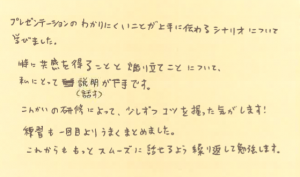 プレゼンテーションのわかりにくいことが上手に伝わるシナリオについて
学びました。
特に共感を得ることと煽り立てことについて、
私にとって説明がやまです。
(話す)
こんかいの研修によって、少しずつコツを握った気がします!
練習も一回目よりうまくまとめました。
これからももっとスムーズに話せるよう繰り返して勉強します。